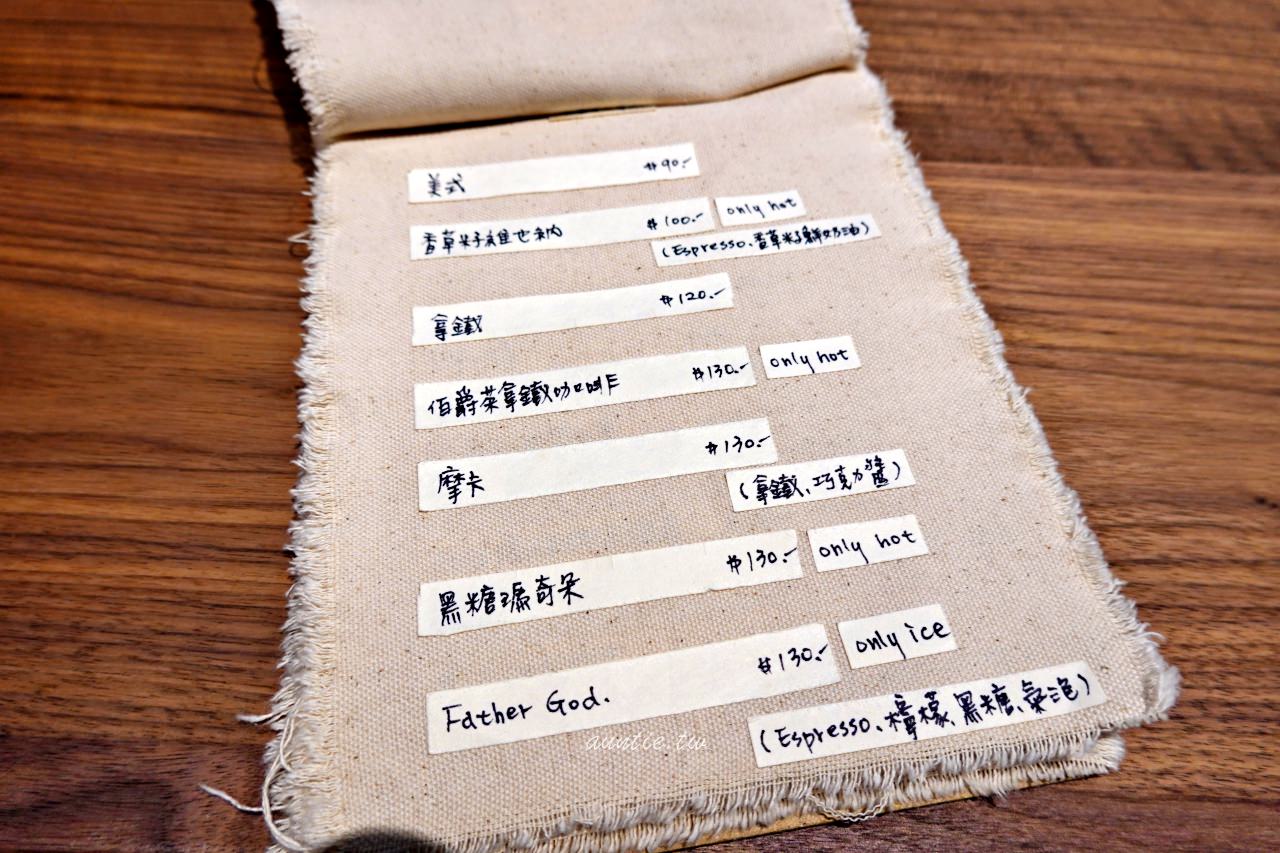 美式 $90.-
香草籽維也納 $100.- only hot
(Espresso、香草籽鮮奶油)
拿鐵 $120.-
伯爵茶拿鐵咖啡 $130.- only hot
摩卡 $130.-
(拿鐵、巧克力醬)
黑糖瑪奇朵 $130.- only hot
Father God. $130.- only ice
(Espresso、檸檬、黑糖、氣泡)
auntie.tw